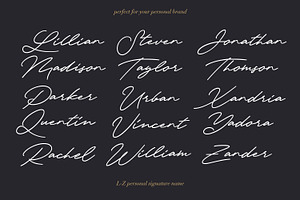 perfect for your personal brand
Lillian Steven Jonathan
Madison Taylor Thomson
Parker Urban Xandria
Quentin Vincent Yadora
Rachel William Zander
L-Z personal signature name